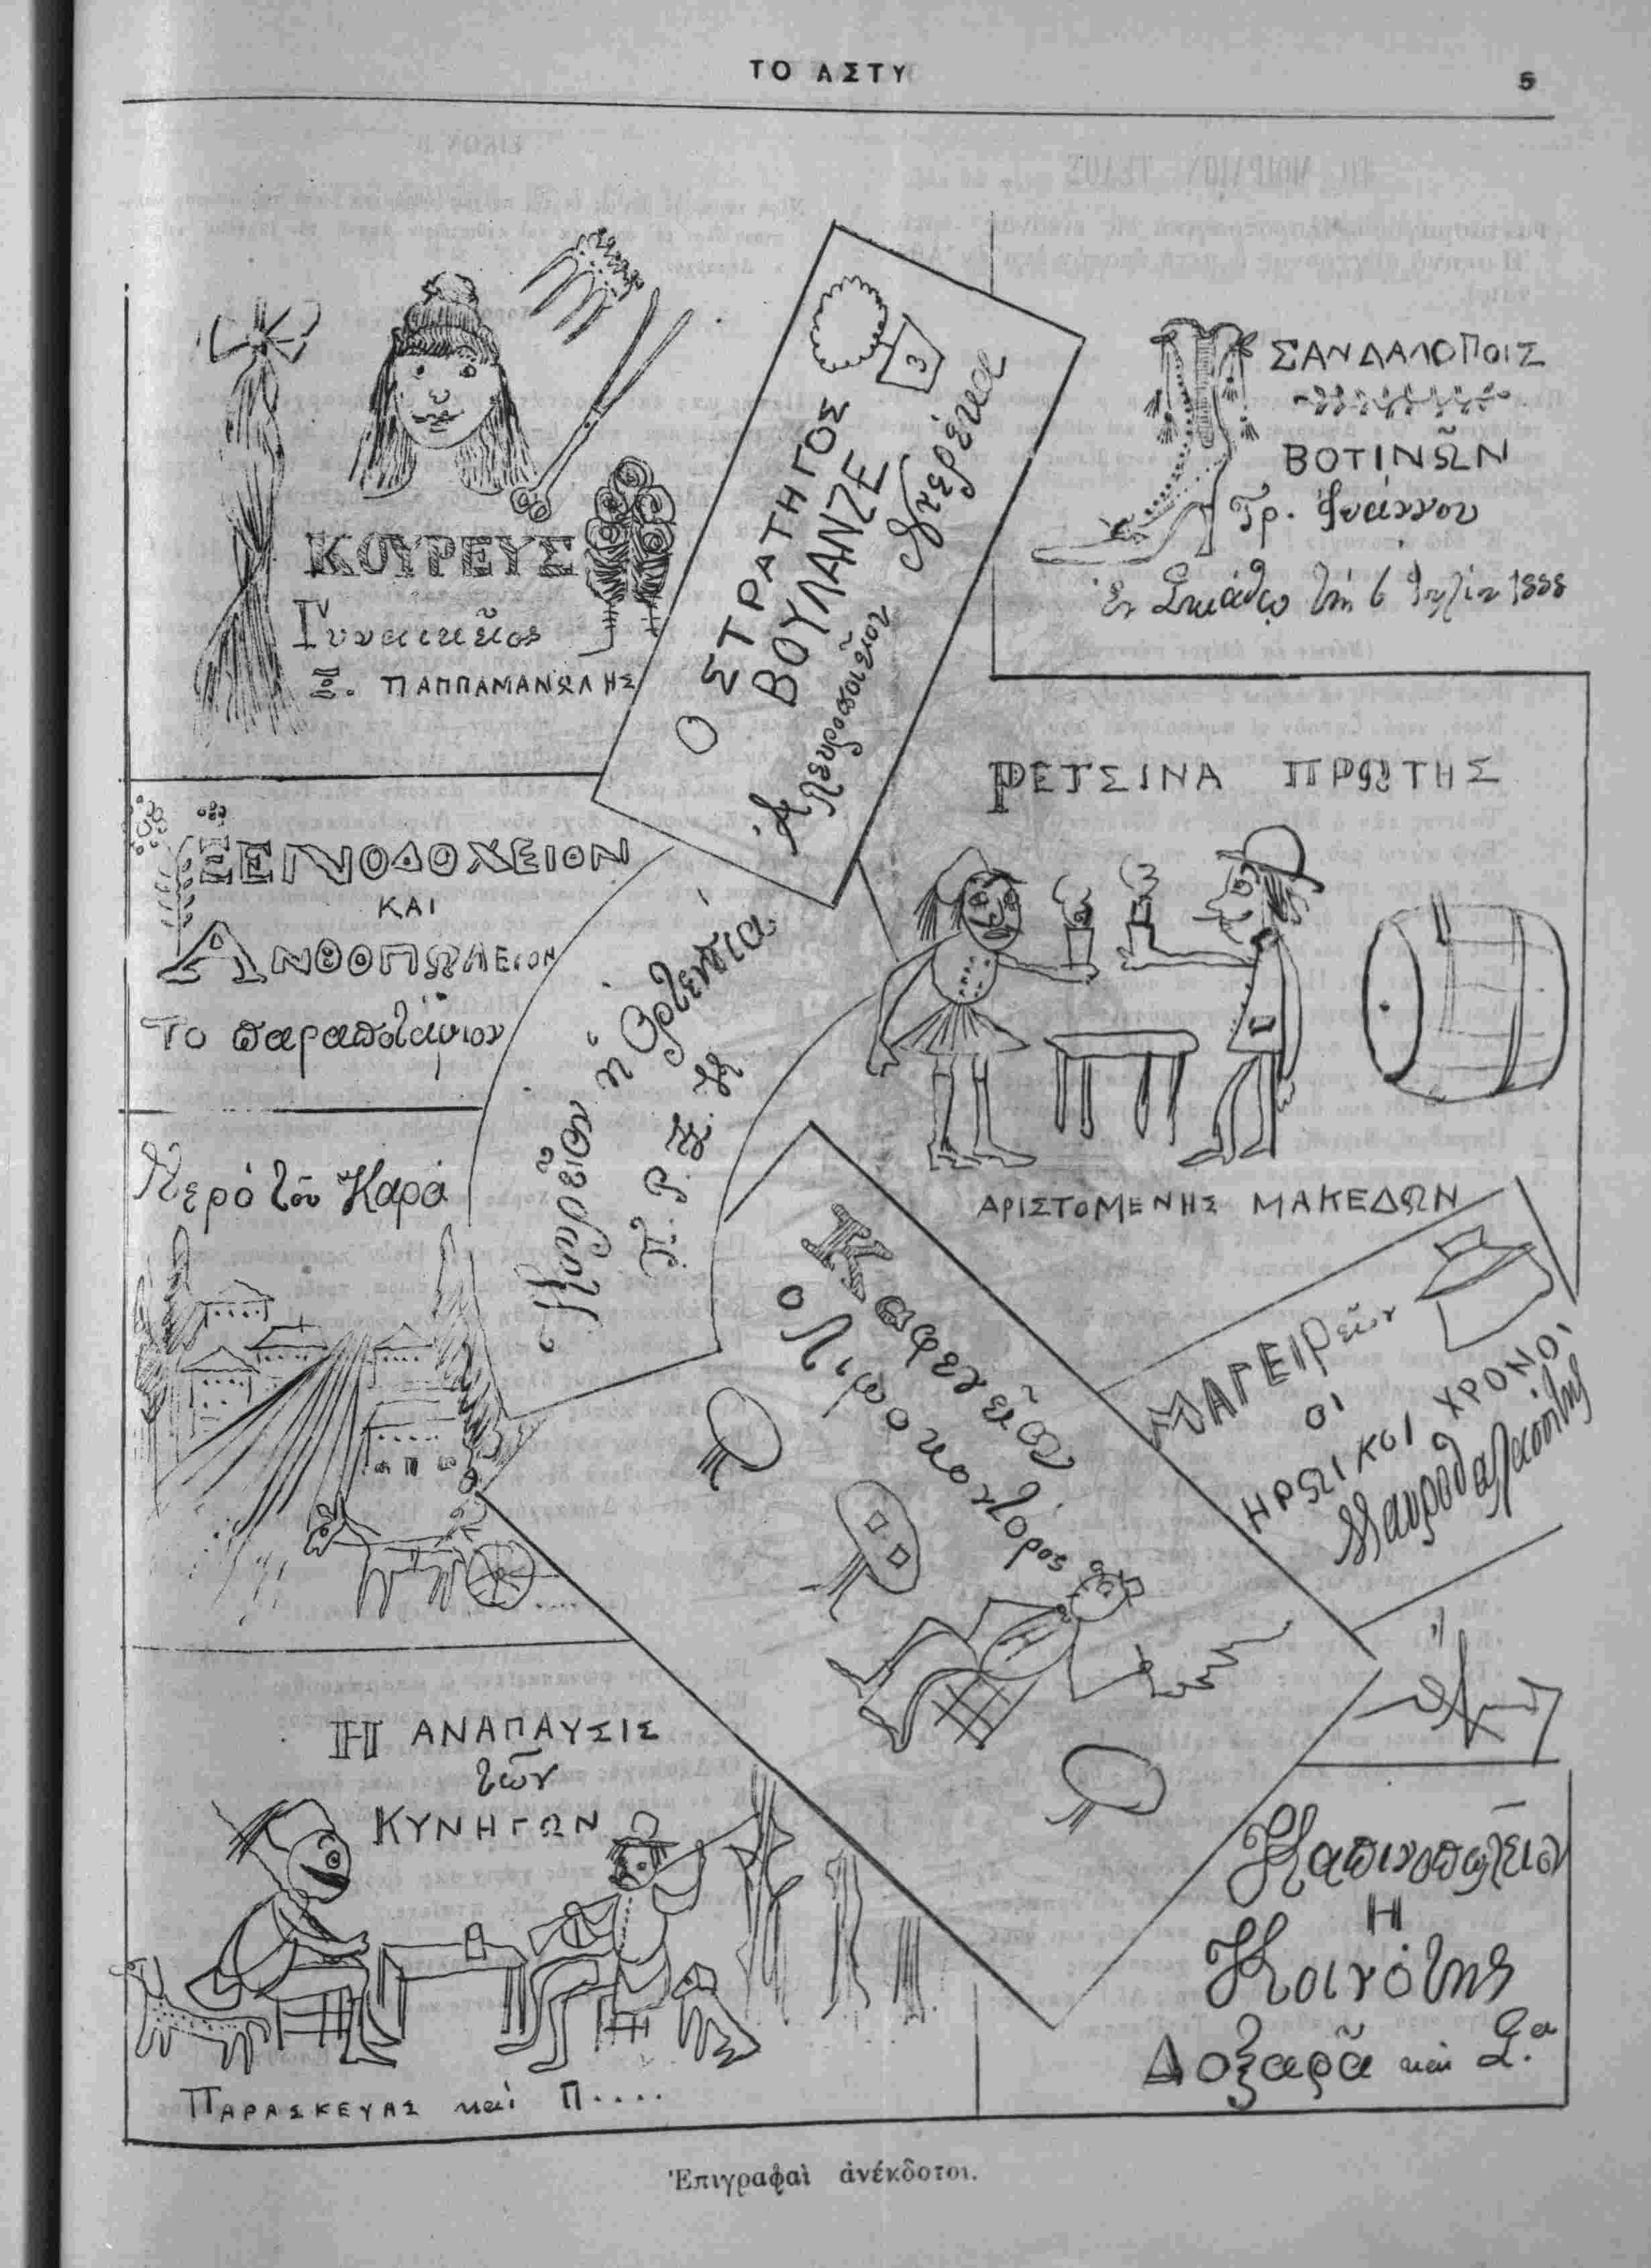 ΤΟ ΑΣΤΥ
5
ΚΟΥΡΕΥΣ
Γυναικεῖος
Ξ. ΠΑΠΠΑΜΑΝΩΛΗΣ
3
Ο ΣΤΡΑΤΗΓΟΣ
ΒΟΥΛΑΝΖΕ
Ἀλευροποιεῖον
Στερέκα
ΣΑΝΔΑΛΟΠΟΙΣ
ΒΟΤΙΝΩΝ
Γρ. Ἰωάννου
Ἐν Σκιάθῳ τῇ 6
1888
ΞΕΝΟΔΟΧΕΙΟΝ
ΚΑΙ
ΑΝΘΟΠΩΛΕΙΟΝ
Το παραποτάμιον
Κουρεῖον ἡ Ὀρτενσία
Π. Ρ. Ζ. Κ
ΡΕΤΣΙΝΑ ΠΡΩΤΗΣ
ΑΡΙΣΤΟΜΕΝΗΣ ΜΑΚΕΔΩΝ
Νερό τοῦ Καρά
Καφενεῖον
ο Λιμοκοντόρος
ΜΑΓΕΙΡεῖον
ΟΙ
ΗΡΩΙΚΟΙ ΧΡΟΝΟΙ
Μαυροθαλασσίτης
Η ΑΝΑΠΑΥΣΙΣ
τῶν
ΚΥΝΗΓΩΝ
ΠΑΡΑΣΚΕΥΑΣ καὶ Π....
Καπνοπωλεῖον
Η
Κοινότης
Δοξαρᾶ καὶ Σα
Ἐπιγραφαὶ ἀνέκδοτοι.